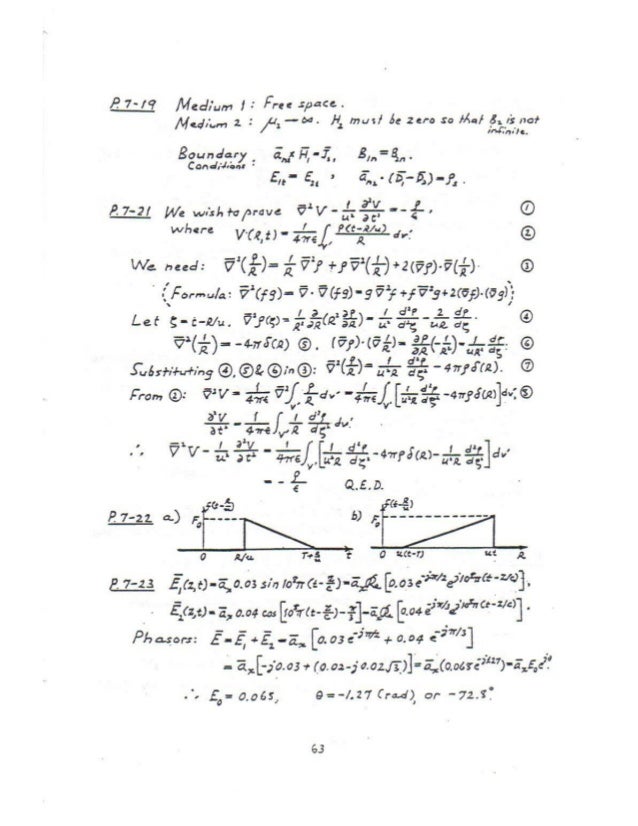 P.7-19 Medium 1: Free space.
Medium 2: μ₂→∞. H₂ must be zero so that B₂ is not infinite.
Boundary Conditions: ā_n2 × H̄₁ = J̄_s, B_1n = B_2n.
E_1t = E_2t, ā_n2·(D̄₁−D̄₂) = ρ_s.
P.7-21 We wish to prove ∇̄²V − (1/u²) ∂²V/∂t² = −ρ/ε, ①
where V(R,t) = (1/4πε) ∫_V' ρ(t−R/u)/R dv'. ②
We need: ∇̄²(ρ/R) = (1/R) ∇̄²ρ + ρ∇̄²(1/R) + 2(∇̄ρ)·∇̄(1/R). ③
(Formula: ∇̄²(fg) = ∇̄·∇̄(fg) = g∇̄²f + f∇̄²g + 2(∇̄f)·(∇̄g));
Let ζ = t−R/u. ∇̄²ρ(ζ) = (1/R²) ∂/∂R (R² ∂ρ/∂R) = (1/u²) d²ρ/dζ² − (2/uR) dρ/dζ. ④
∇̄²(1/R) = −4πδ(R) ⑤. (∇̄ρ)·(∇̄ 1/R) = ∂ρ/∂R (−1/R²) = (1/uR²) dρ/dζ. ⑥
Substituting ④, ⑤ & ⑥ in ③: ∇̄²(ρ/R) = (1/u²R) d²ρ/dζ² − 4πρδ(R). ⑦
From ②: ∇̄²V = (1/4πε) ∇̄² ∫_V' ρ/R dv' = (1/4πε) ∫_V' [(1/u²R) d²ρ/dζ² − 4πρδ(R)] dv', ⑧
∂²V/∂t² = (1/4πε) ∫_V' (1/R) d²ρ/dζ² dv'.
∴ ∇̄²V − (1/u²) ∂²V/∂t² = (1/4πε) ∫_V' [(1/u²R) d²ρ/dζ² − 4πρδ(R) − (1/u²R) d²ρ/dζ²] dv'
= −ρ/ε Q.E.D.
P.7-22 a) f(t−R/u) F₀ 0 R/u T+R/u t
b) f(t−R/u) F₀ 0 u(t−T) ut R
P.7-23 Ē₁(z,t) = ā_x 0.03 sin 10⁸π(t−z/c) = ā_x ℛe [0.03 e^{−jπ/2} e^{j10⁸π(t−z/c)}],
Ē₂(z,t) = ā_x 0.04 cos [10⁸π(t−z/c) − π/3] = ā_x ℛe [0.04 e^{−jπ/3} e^{j10⁸π(t−z/c)}].
Phasors: Ē = Ē₁ + Ē₂ = ā_x [0.03 e^{−jπ/2} + 0.04 e^{−jπ/3}]
= ā_x [−j0.03 + (0.02−j0.02√3)] = ā_x (0.068 e^{−j1.27}) = ā_x E₀ e^{jθ}.
∴ E₀ = 0.065, θ = −1.27 (rad), or −72.8°.
63